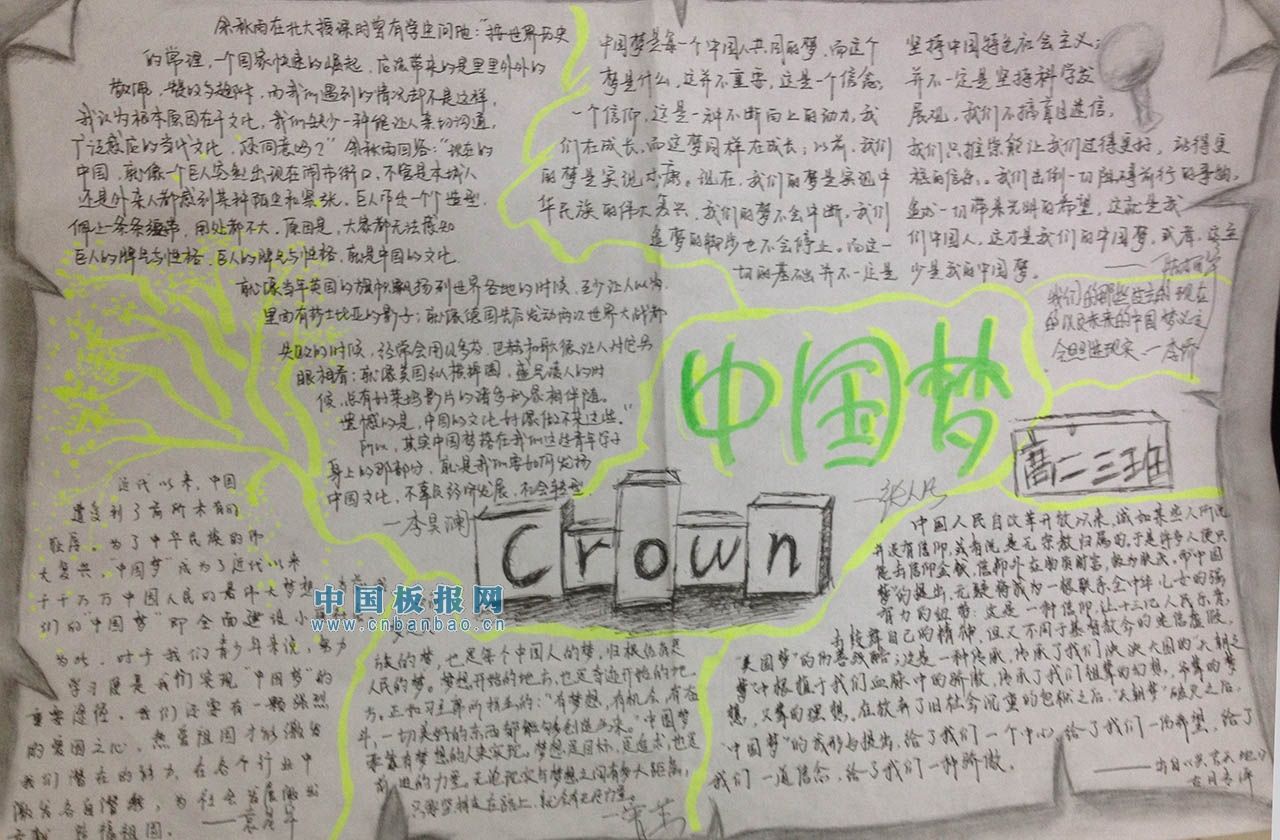 余秋雨在北大授课时曾有学生问他："按世界历史
的常理，一个国家快速的崛起，应该带来的是里里外外的
我认为根本原因在于文化，我们缺少一种能让人亲切沟通，
广泛感应的当代文化，您同意吗？"余秋雨回答："现在的
中国，就像一个巨人突然出现在闹市街口，不管是本城人
还是外来人都感到某种陌生和紧张。巨人作出一个个造型，
佩上一条条绶带，用处都不大。原因是，大家都无法感知
巨人的脾气与性格。巨人的脾气与性格，就是中国的文化。
就像当年英国的旗帜飘扬到世界各地的时候，至少让人以为，
里面有莎士比亚的影子；就像德国先后发动两次世界大战都
失败的时候，经常会用贝多芬，巴赫和歌德让人对他另
眼相看；就像美国纵横捭阖，盛气凌人的时
候，总有好莱坞影片的诸多形象相伴随。
遗憾的是，中国的文化好像做不来这些。"
所以，其实中国梦搭在我们这些青年学子
身上的那部分，就是我们要如何发扬
中国文化，不辜负经济发展，社会转型。
—李昊澜
中国梦是每一个中国人共同的梦，而这个
梦是什么，这并不重要，这是一个信念，
一个信仰，这是一种不断向上的动力，我
们在成长，而这梦同样在成长；以前，我们
的梦是实现小康。现在，我们的梦是实现中
华民族的伟大复兴，我们的梦不会中断，我们
追梦的脚步也不会停止。而这一
切的基础并不一定是
坚持中国特色社会主义；
并不一定是坚持科学发
展观，我们不搞盲目迷信，
我们只推崇能让我们过得更好，站得更
稳的信念。我们击倒一切阻碍前行的事物，
追求一切带来光辉的希望，这就是我
们中国人，这才是我们的中国梦，或者，这至
少是我的中国梦。
我们的那些过去的现在
的以及未来的中国梦必定
会照进现实。
中国梦
高二三班
Crown
近代以来，中国
遭受到了前所未有的
耻辱。为了中华民族的伟
大复兴，"中国梦"成为了近代以来
千千万万中国人民的最伟大梦想。
们的"中国梦"即全面建设小
为此，对于我们青少年来说，努力
学习便是我们实现"中国梦"的
重要途径。我们还要有一颗强烈
的爱国之心，热爱祖国才能激发
我们潜在的动力，在各个行业中
激发各自潜能，为社会发展做出
贡献，造福祖国。
中国板报网
www.cnbanbao.cn
族的梦，也是每个中国人的梦，归根结底是
人民的梦。梦想开始的地方，也是奇迹开始的地
方。正如习主席所指出的："有梦想，有机会，有奋
斗，一切美好的东西都能够创造出来。"中国梦
需要有梦想的人来实现。梦想是目标，是追求，也是
前进的力量。无论现实与梦想之间有多大距离，
只要坚持走在路上，就会有无尽力量。
中国人民自改革开放以来，诚如某些人所说
并没有信仰，或有说是无宗教归属的，于是许多人便只
能去信仰金钱，信仰外在物质财富，
梦的提出，无疑将成为一根联系全中华儿女的强
有力的纽带：这是一种信仰，让十三亿人民乐意
去鼓舞自己的精神，但又不同于基督教会的迷信虚假，
"美国梦"的伪善战略；这是一种传承，传承了我们泱泱大国的"天朝之
梦"中根植于我们血脉中的骄傲，传承了我们祖辈的幻想，父辈的梦
想，又辈的理想。在放弃了旧社会沉重的包袱之后，"天朝梦"破灭之后，
"中国梦"的成形与提出，给了我们一个中心，给了我们一份希望，给了
我们一道信念，给了我们一种骄傲。